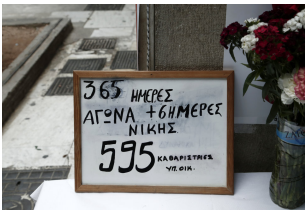 365 ΗΜΕΡΕΣ
ΑΓΩΝΑ +6ΗΜΕΡΕΣ
ΝΙΚΗΣ
595 ΚΑΘΑΡΙΣΤΡΙΕΣ
ΥΠ. ΟΙΚ.